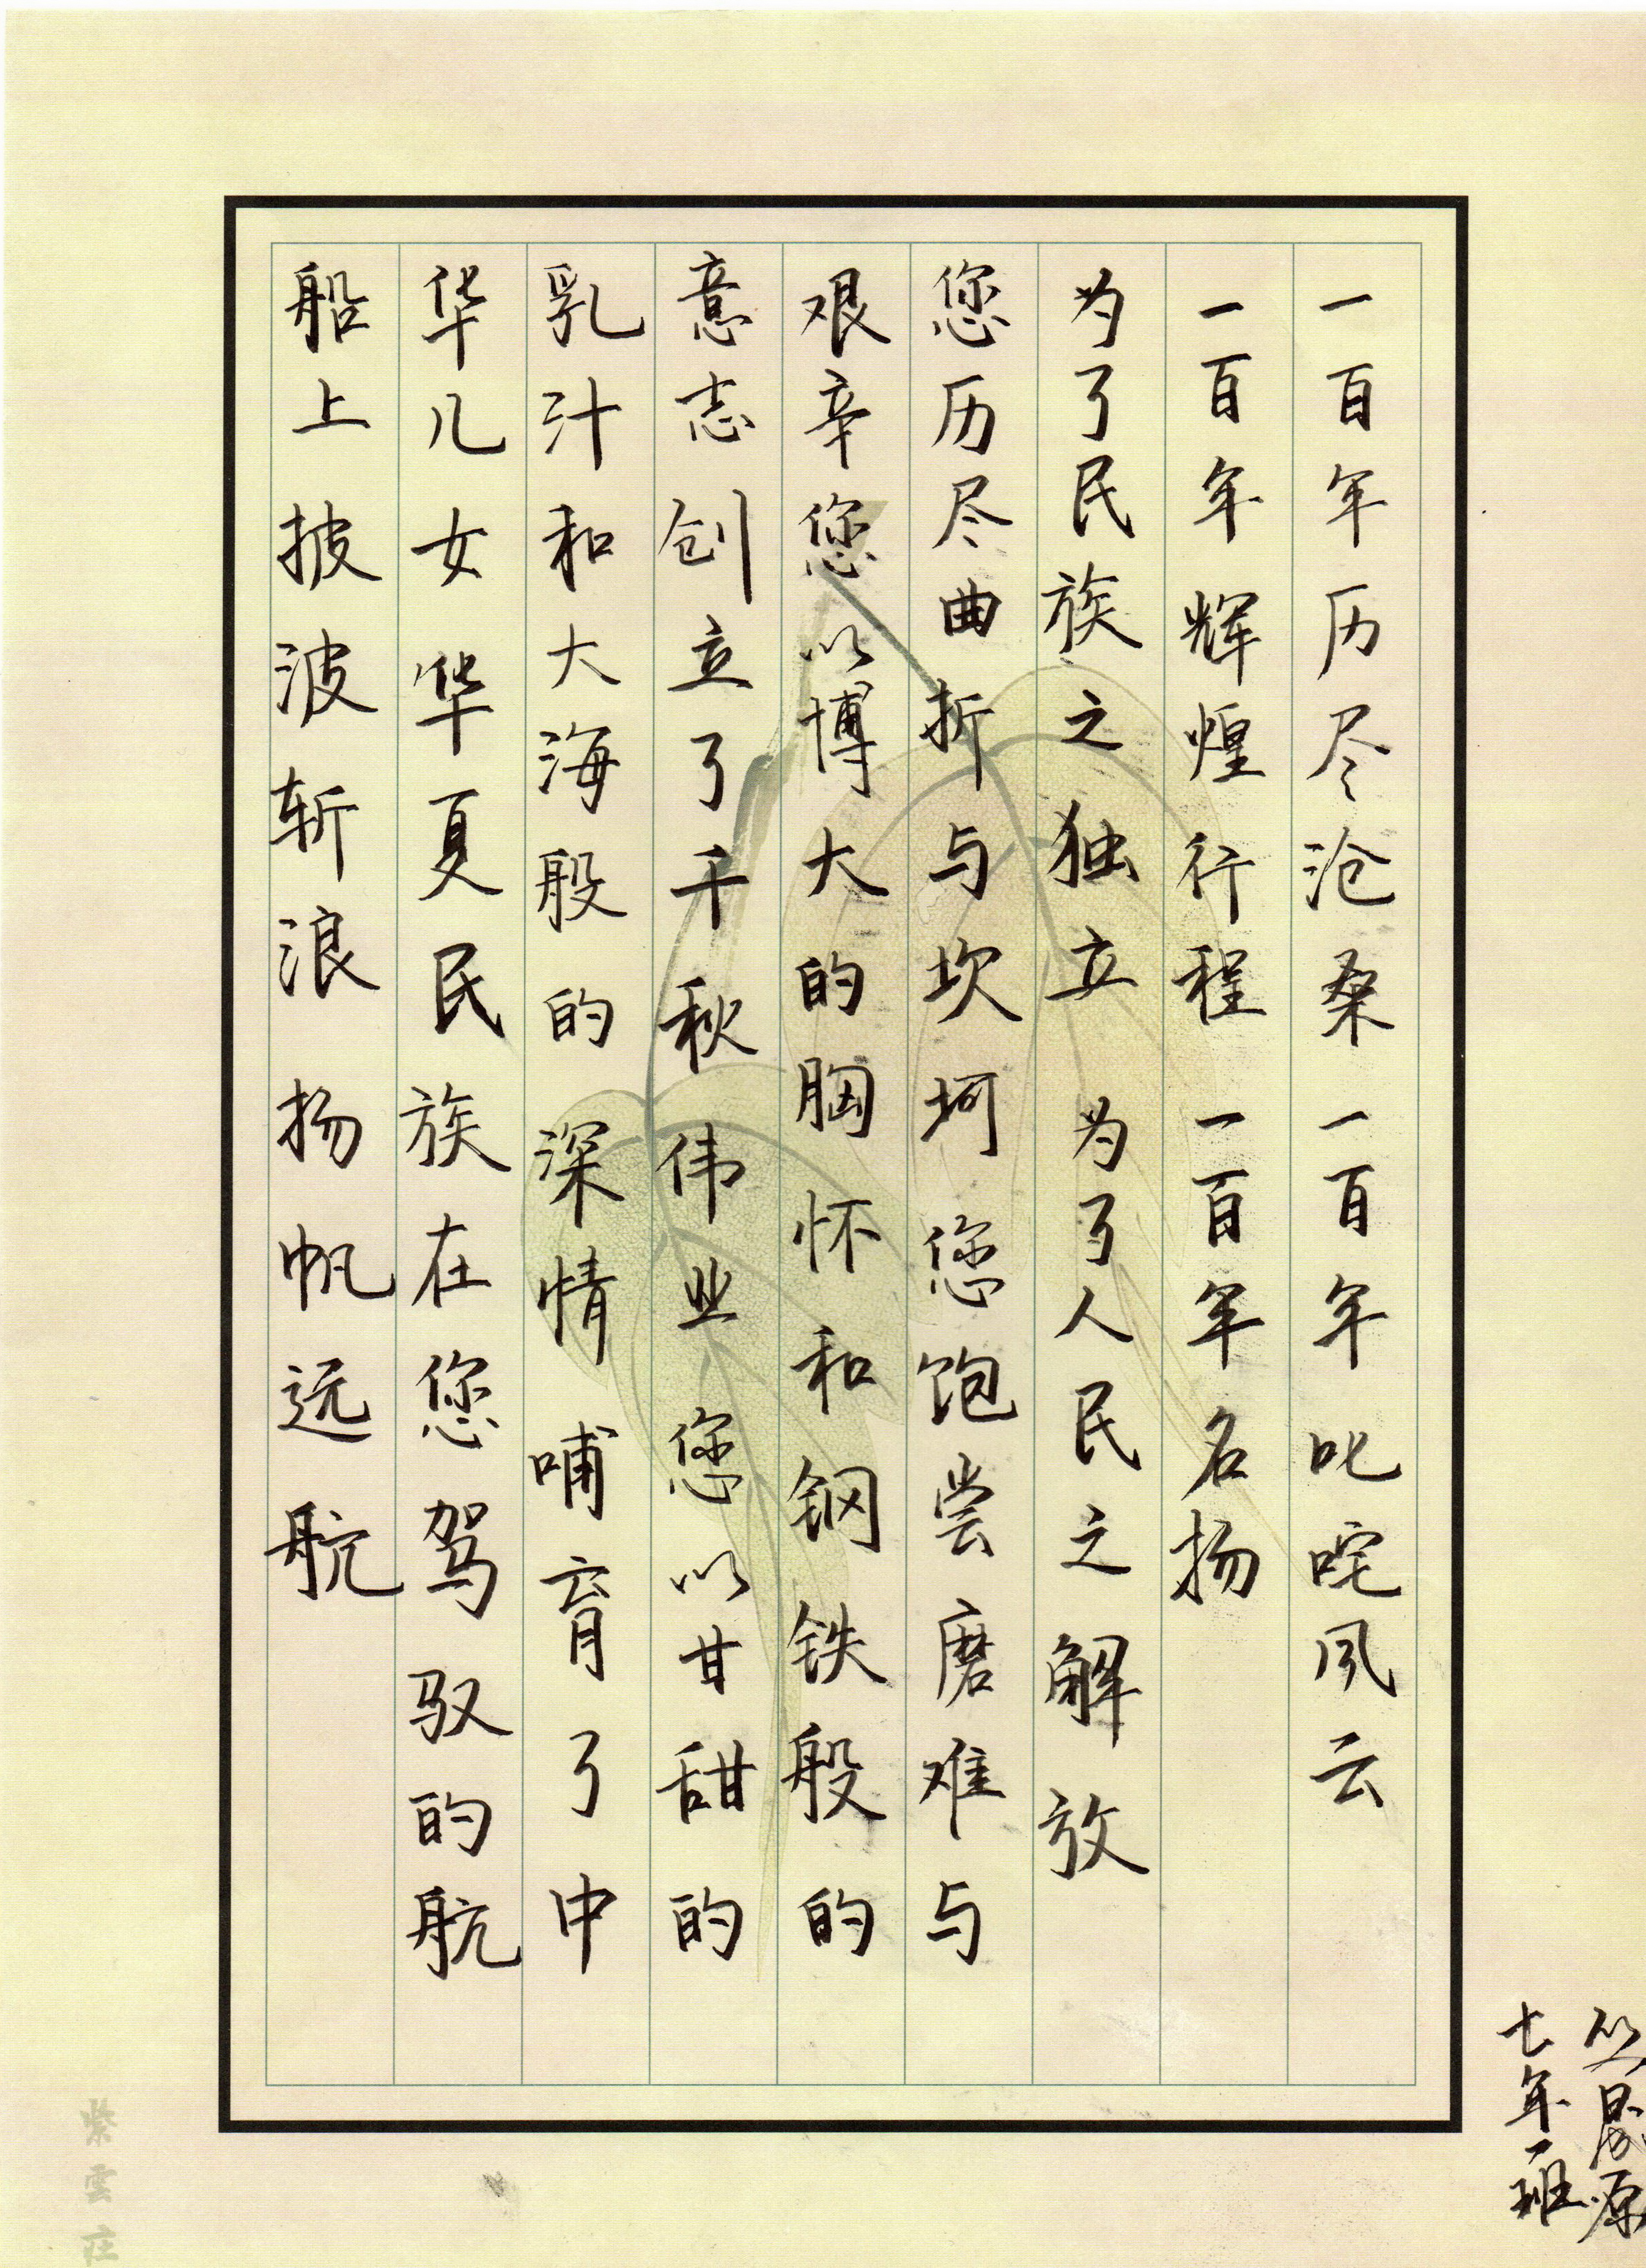 一百年历尽沧桑一百年叱咤风云
一百年辉煌行程一百年名扬
为了民族之独立为了人民之解放
您历尽曲折与坎坷您饱尝磨难与
艰辛您以博大的胸怀和钢铁般的
意志创立了千秋伟业您以甘甜的
乳汁和大海般的深情哺育了中
华儿女华夏民族在您驾驭的航
船上披波斩浪扬帆远航
七年一班